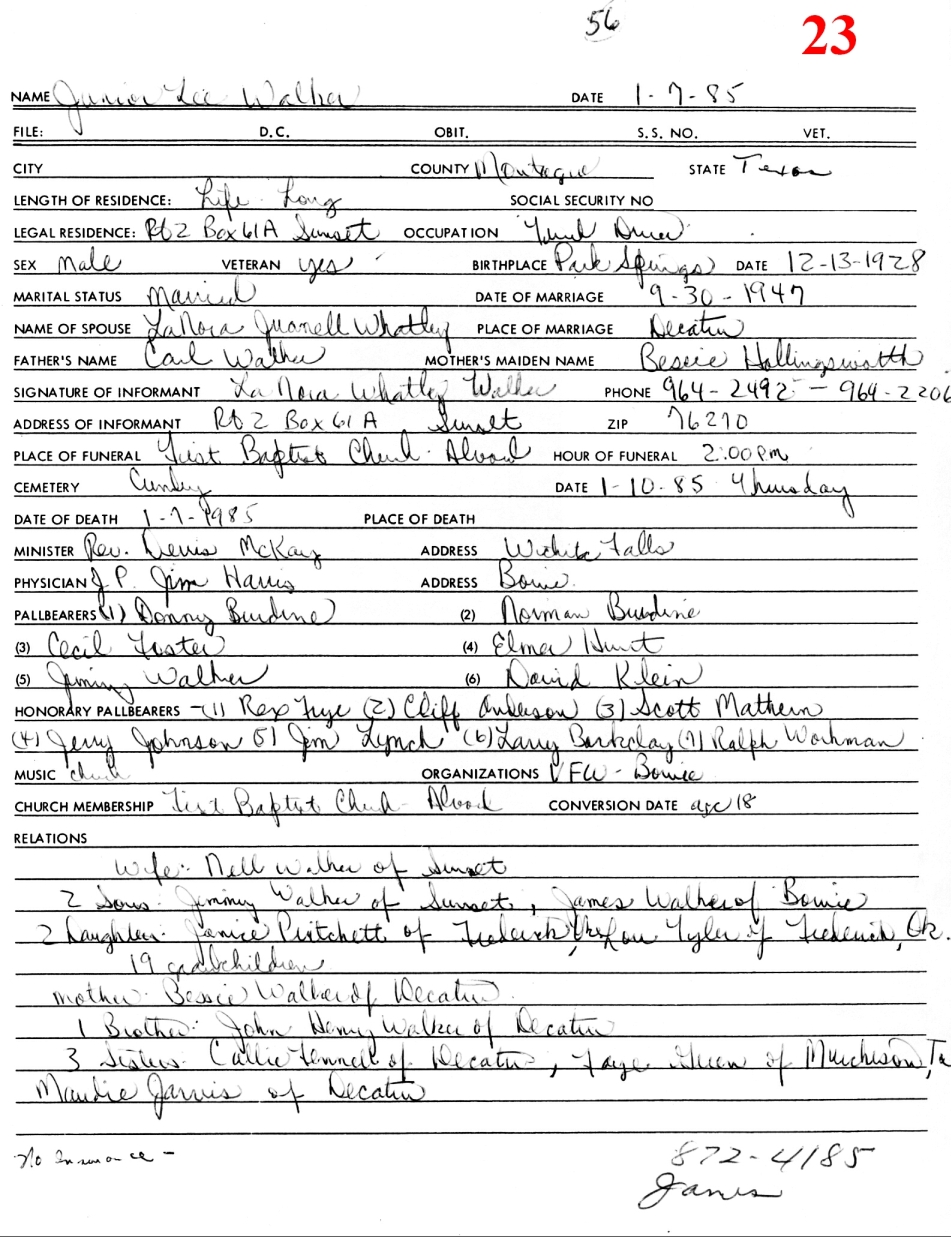 56 23
NAME Junior Lee Walker DATE 1-7-85
FILE: D.C. OBIT. S.S. NO. VET.
CITY COUNTY Montague STATE Texas
LENGTH OF RESIDENCE: Life Long SOCIAL SECURITY NO
LEGAL RESIDENCE: Rt 2 Box 61A Sunset OCCUPATION Driver
SEX Male VETERAN yes BIRTHPLACE Park Springs DATE 12-13-1928
MARITAL STATUS Married DATE OF MARRIAGE 9-30-1947
NAME OF SPOUSE LaNora Juanell Whatley PLACE OF MARRIAGE Decatur
FATHER'S NAME Carl Walker MOTHER'S MAIDEN NAME Bessie Hollingsworth
SIGNATURE OF INFORMANT La Nora Whatley Walker PHONE 964-2492 - 964-2206
ADDRESS OF INFORMANT Rt 2 Box 61 A Sunset ZIP 76270
PLACE OF FUNERAL First Baptist Church - Alvord HOUR OF FUNERAL 2:00 pm
CEMETERY DATE 1-10-85 Thursday
DATE OF DEATH 1-7-1985 PLACE OF DEATH
MINISTER Rev. Dennis McKay ADDRESS Wichita Falls
PHYSICIAN J.P. Jim Harris ADDRESS Bowie
PALLBEARERS (1) Donny Burdine (2) Norman Burdine
(3) Cecil Foster (4) Elmer Hunt
(5) Jimmy Walker (6) David Klein
HONORARY PALLBEARERS - (1) Rex Frye (2) Cliff Anderson (3) Scott Mathern
(4) Jerry Johnson (5) Jim Lynch (6) Larry Barkolay (7) Ralph Workman
MUSIC church ORGANIZATIONS VFW - Bowie
CHURCH MEMBERSHIP First Baptist Church - Alvord CONVERSION DATE age 18
RELATIONS
Wife: Nell Walker of Sunset
2 Sons: Jimmy Walker of Sunset, James Walker of Bowie
2 Daughters: Janice Pritchett of Frederick, Lou Tyler of Frederick, Ok.
19 grandchildren
Mother: Bessie Walker of Decatur
1 Brother: John Henry Walker of Decatur
3 Sisters: Callie of Decatur, Faye Green of Murchison, Tx
Maudie Jarvis of Decatur
No Insurance - 872-4185
James